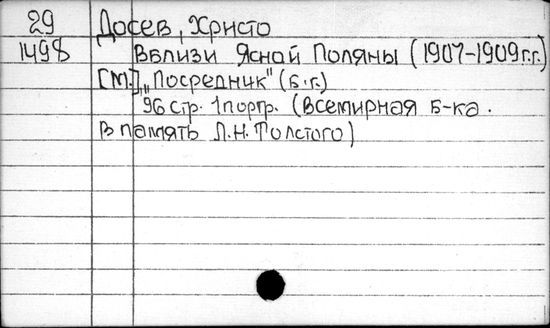 29 Досев, Христо
1498 Вблизи Ясной Поляны (1907-1909г.г.)
[М.], „Посредник" (б.г.)
96 стр. 1 портр. (Всемирная б-ка.
В память Л.Н. Толстого)